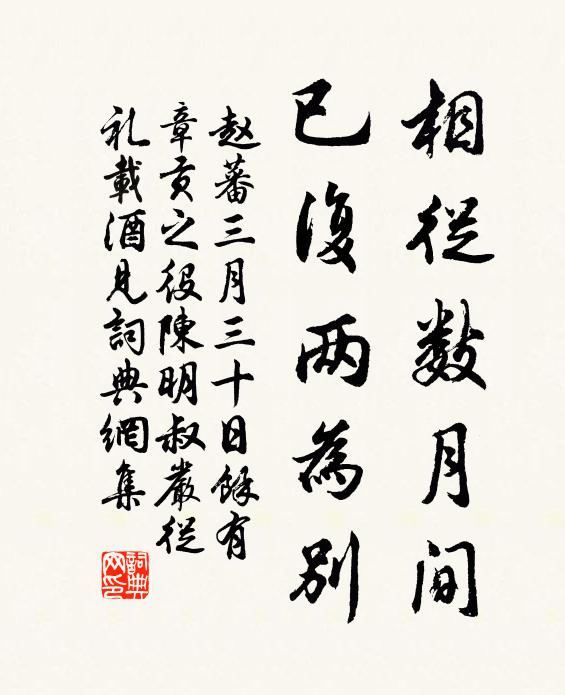 相從数月间
已復两為别
赵蕃三月三十日餘有
章贡之役陳明叔嚴從
礼載酒見詞典網集
詞典
网印